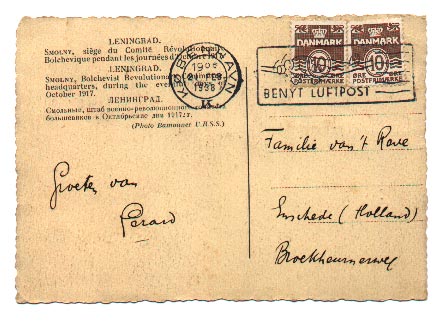 LENINGRAD.
SMOLNY, siège du Comité Révolutionnaire
Bolchevique pendant les journées d'Octobre 1917.
LENINGRAD.
SMOLNY, Bolchevist Revolutionary
headquarters, during the
October 1917.
ЛЕНИНГРАД.
Смольный, штаб военно-революционного
большевиков в Октябрьские дни 1917 г.
(Photo U.R.S.S.)
KØBENHAVN
1938
DANMARK DANMARK
10 10
ØRE ØRE
POSTFRIMÆRKE POSTFRIMÆRKE
BENYT LUFTPOST
Groeten van
Gerard
Familie van 't
Enschede (Holland)